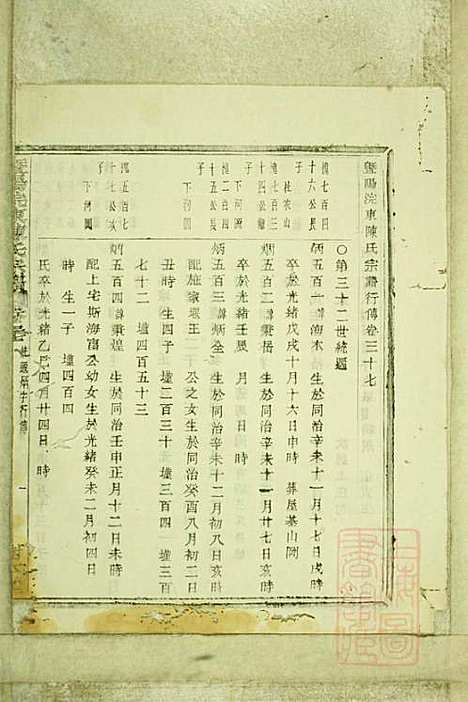 暨陽浣東陳氏宗譜行傳卷三十七
○第三十二世統題
槐七百四
十六公長
子
桂家山
炳五百一諱海木 生於同治辛未十一月十七日戌時
卒於光緒戊戌十月十六日申時 葬屋基山
槐七百三
十四公繼
子
下河園
炳五百二諱秉居 生於同治辛未十一月廿七日亥時
卒於光緒壬辰 月 日 時
槐二百四
十五公長
子
下河園
炳五百三諱炳全 生於同治辛未十二月初八日亥時
配施家堰王 公之女生於同治癸酉八月初二日
丑時 生四子 壚二百三十 壚三百四 壚三百
七十二 壚四百五十三
槐五百七
十七公次
子
下河園
炳五百四諱秉煌 生於同治壬申正月十二日未時
配上宅斯海富公幼女生於光緒癸未二月初四日
時 生一子 壚四百四
氏卒於光緒乙巳四月廿四日 時